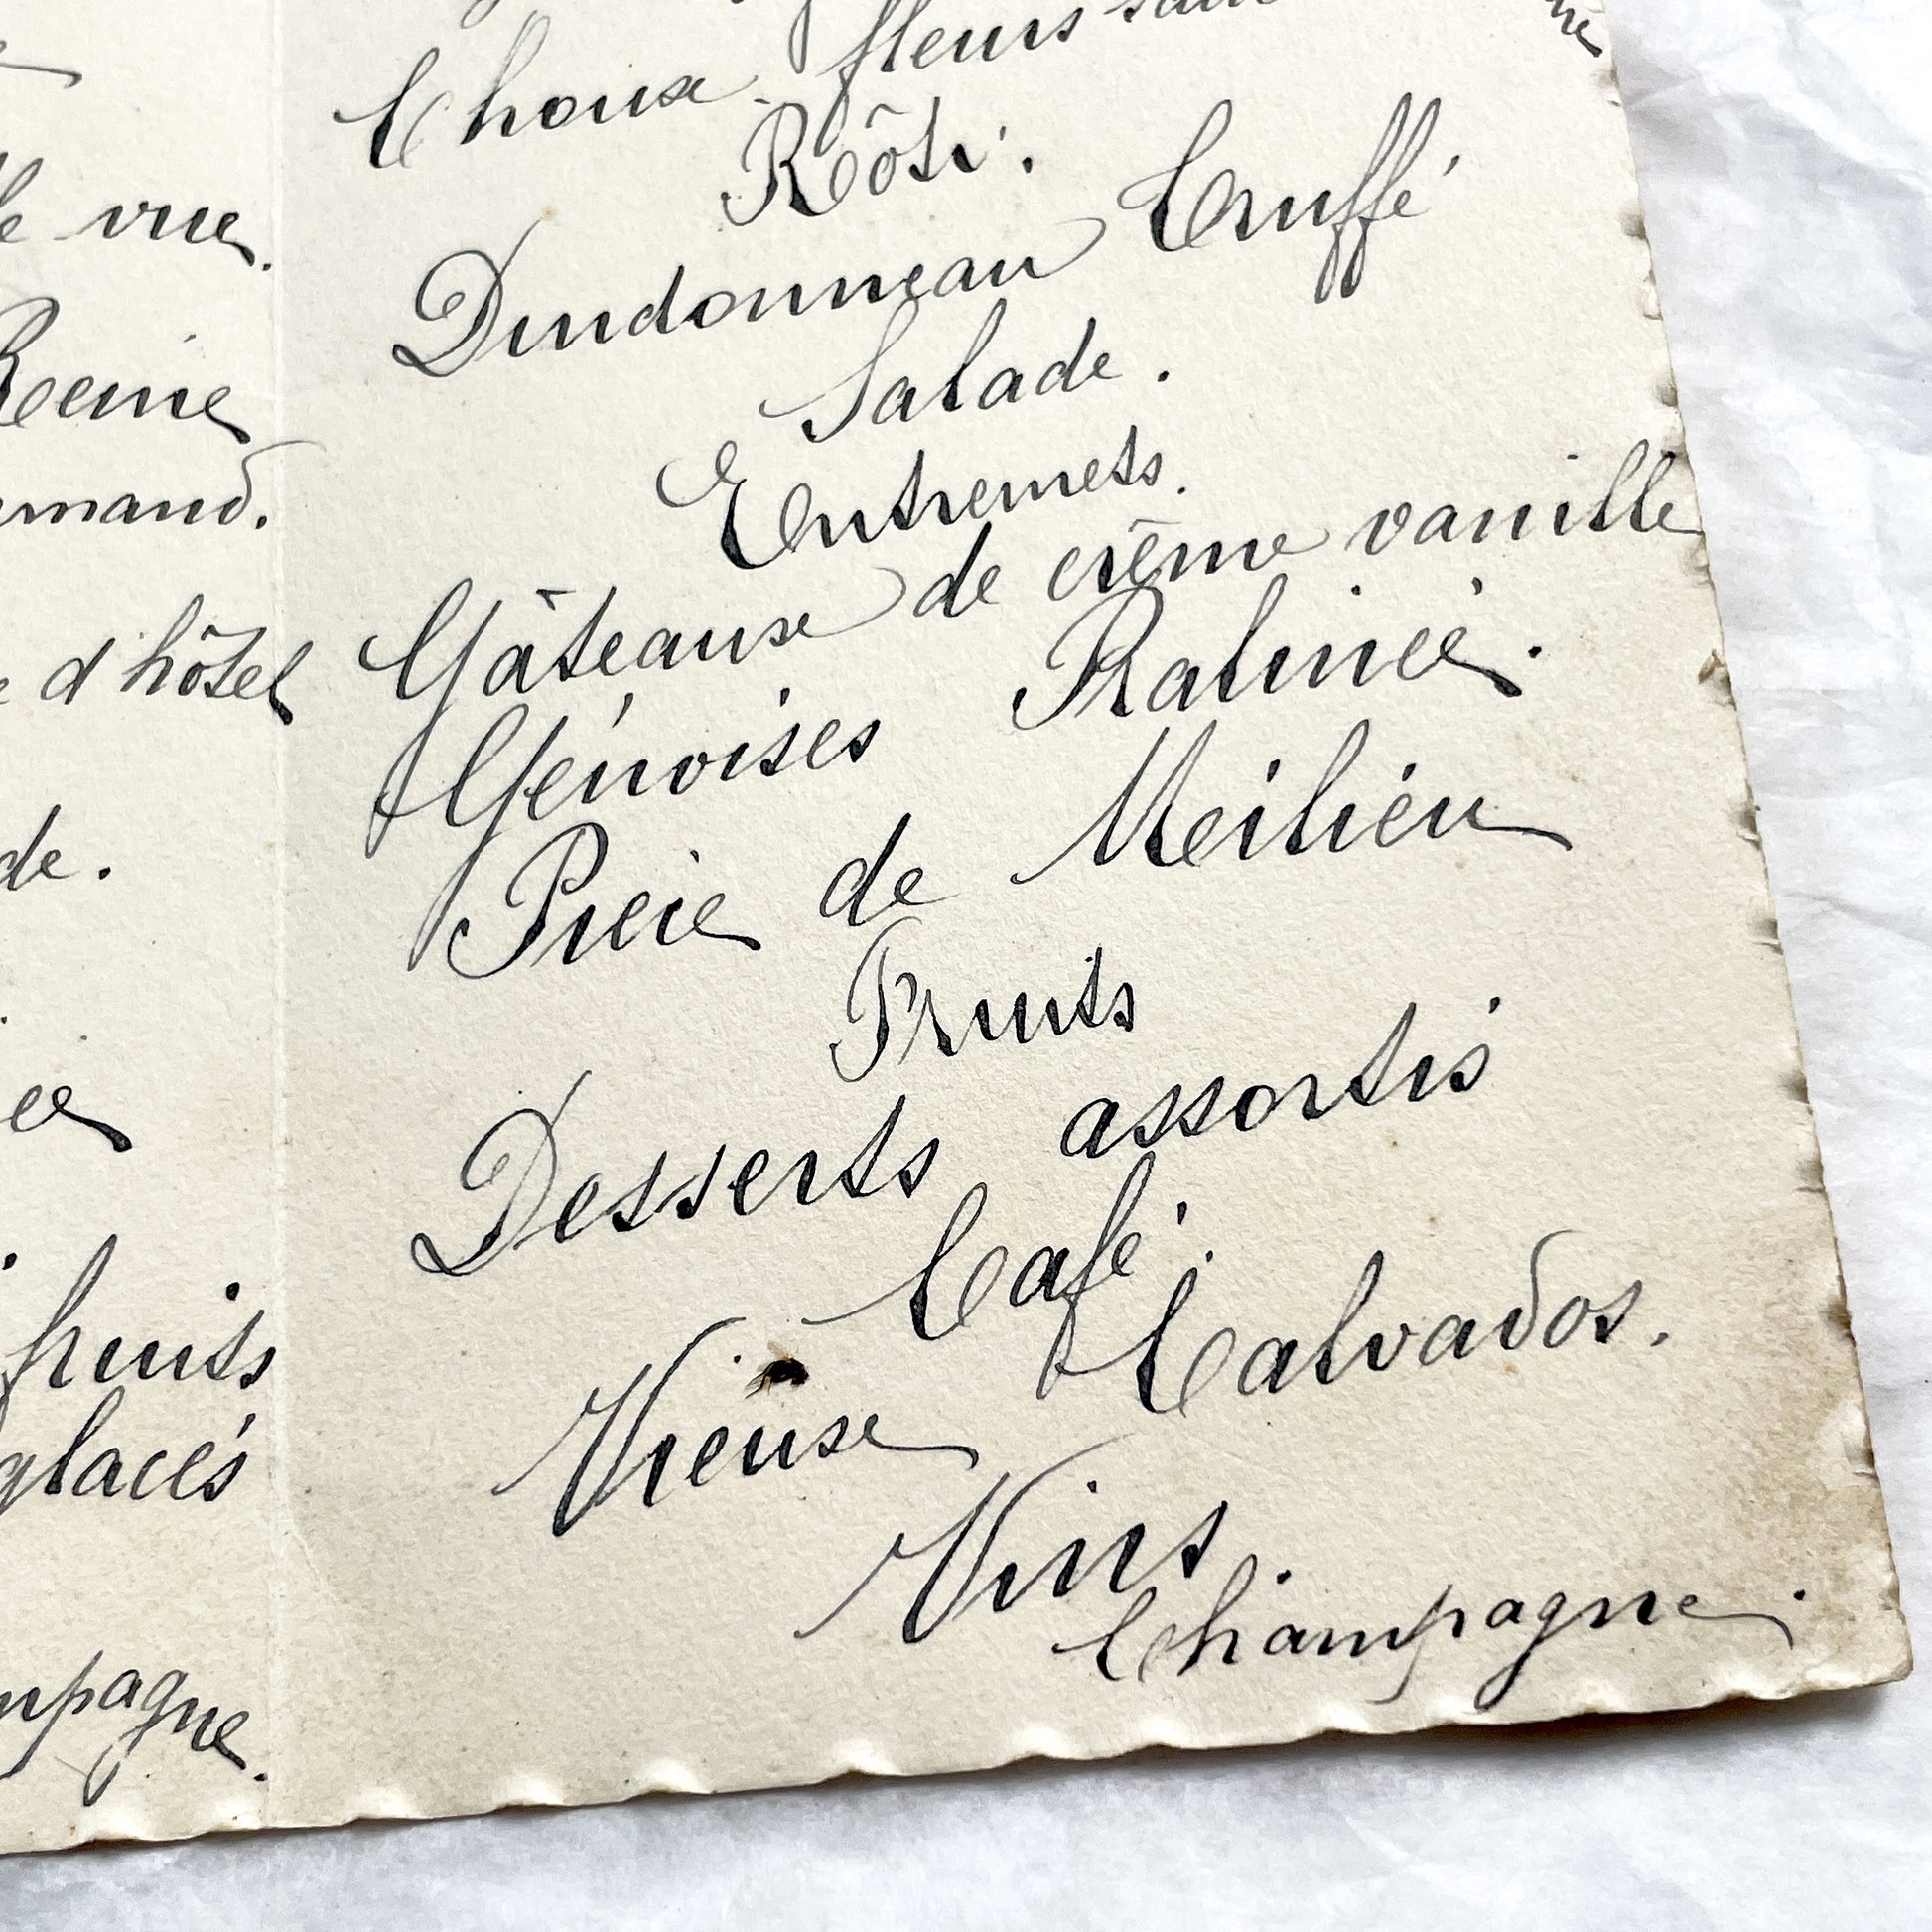 vue.
Reine
d'hôtel
de.
fruits
glacés
Choux-fleurs
Rôti.
Dindonneau Truffé
Salade.
Entremets.
Gâteaux de crème vanille
Génoises Ralinée.
Pièce de Meilieu
Fruits
Desserts assortis
Café.
Vieux Calvados.
Vins.
Champagne.